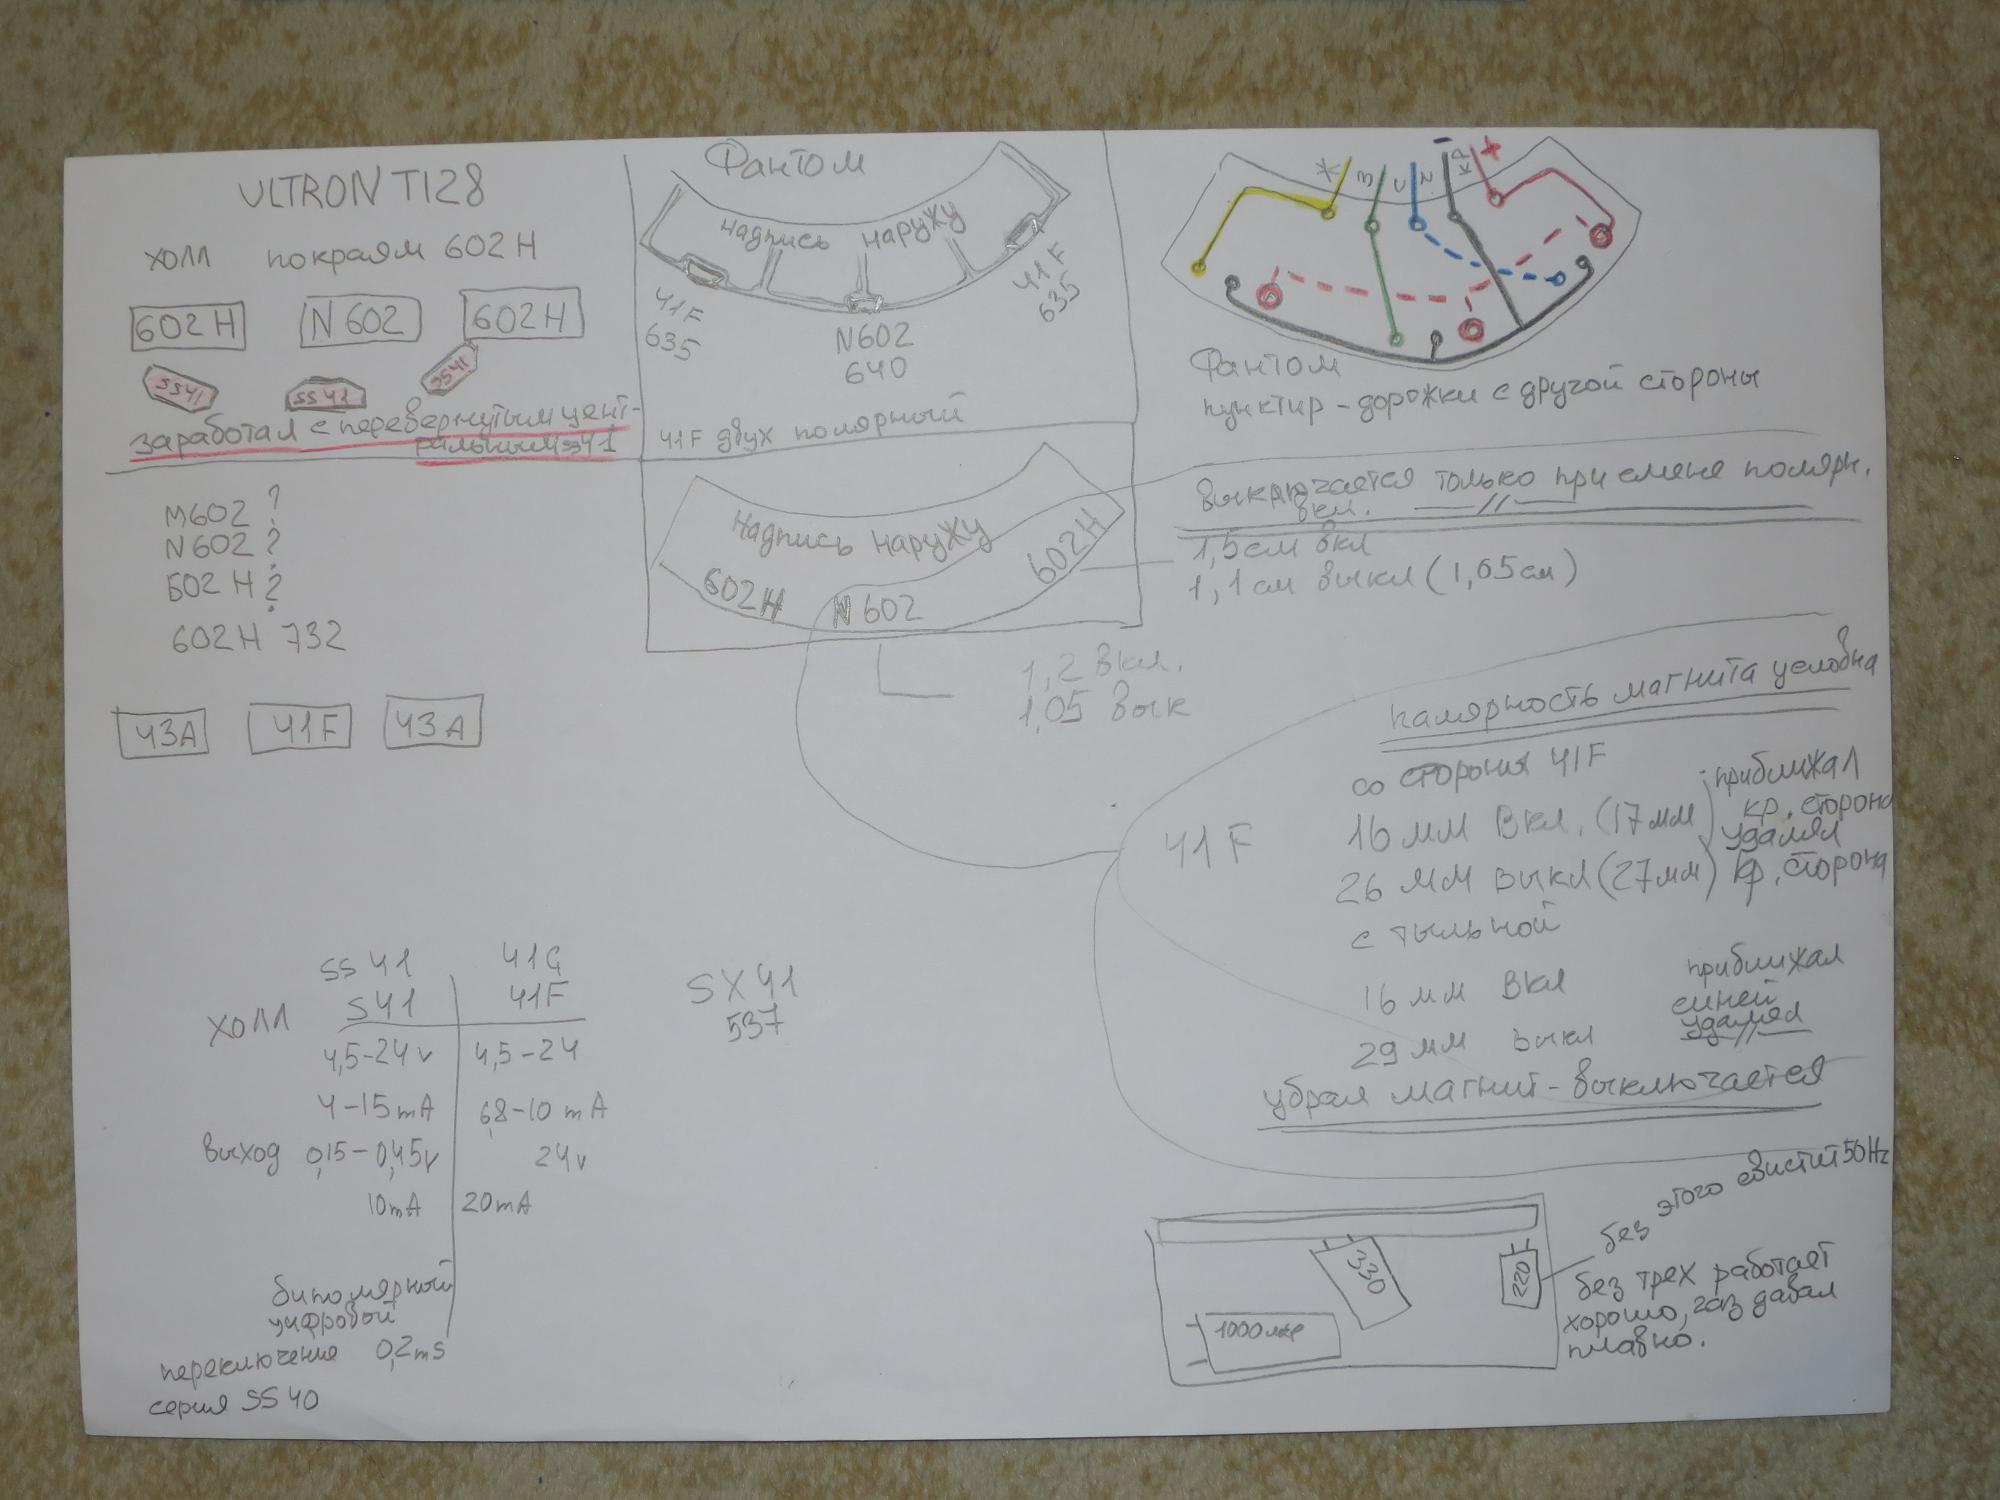 ULTRON T128
холл покраям 602H
602H N602 602H
SS41 SS41 SS41
заработал с перевернутым цент-
ральным ss41
M602 ?
N602 ?
602H ?
602H 732
43A 41F 43A
Фантом
надпись наружу
41F
635
N602
640
41F
635
41F двух полярный
Надпись наружу
602H N602 602H
1,2 вкл.
1,05 вык
Ж З С - КР +
Фантом
пунктир - дорожки с другой стороны
выключается только при смене полярн.
вкл. —//—
1,5см вкл
1,1см выкл (1,65см)
палярность магнита условна
со стороны 41F
41F
16мм вкл. (17мм) приближал кр. сторона
26 мм выкл (27мм) удалял кр. сторона
с тыльной
16мм вкл приближал синей
29мм выкл удалял —//—
убрал магнит - выключается
холл
SS41
S41
41G
41F
4,5-24v 4,5-24
4-15mA 6,8-10mA
выход 0,15-0,45v 24v
10mA 20mA
биполярный
цифровой
переключение 0,2ms
серия SS40
SX41
537
330
220
1000мкф
без этого свистит 50Hz
без трех работает
хорошо, газ давал
плавно.